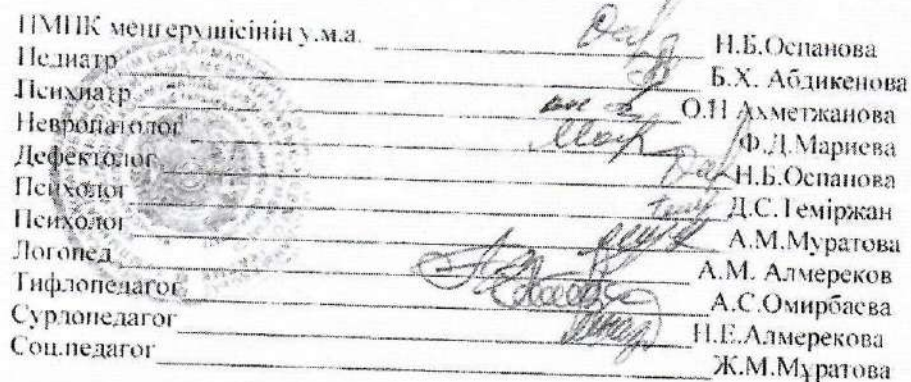 ПМПК меңгерушісінін у.м.а. Н.Б.Оспанова
Педиатр Б.Х. Абдикенова
Психиатр О.Н Ахметжанова
Невропатолог Ф.Д.Мариева
Дефектолог Н.Б.Оспанова
Психолог Д.С.Теміржан
Психолог А.М.Муратова
Логопед А.М. Алмереков
Тифлопедагог А.С.Омирбаева
Сурдопедагог Н.Е.Алмерекова
Соц.педагог Ж.М.Мұратова